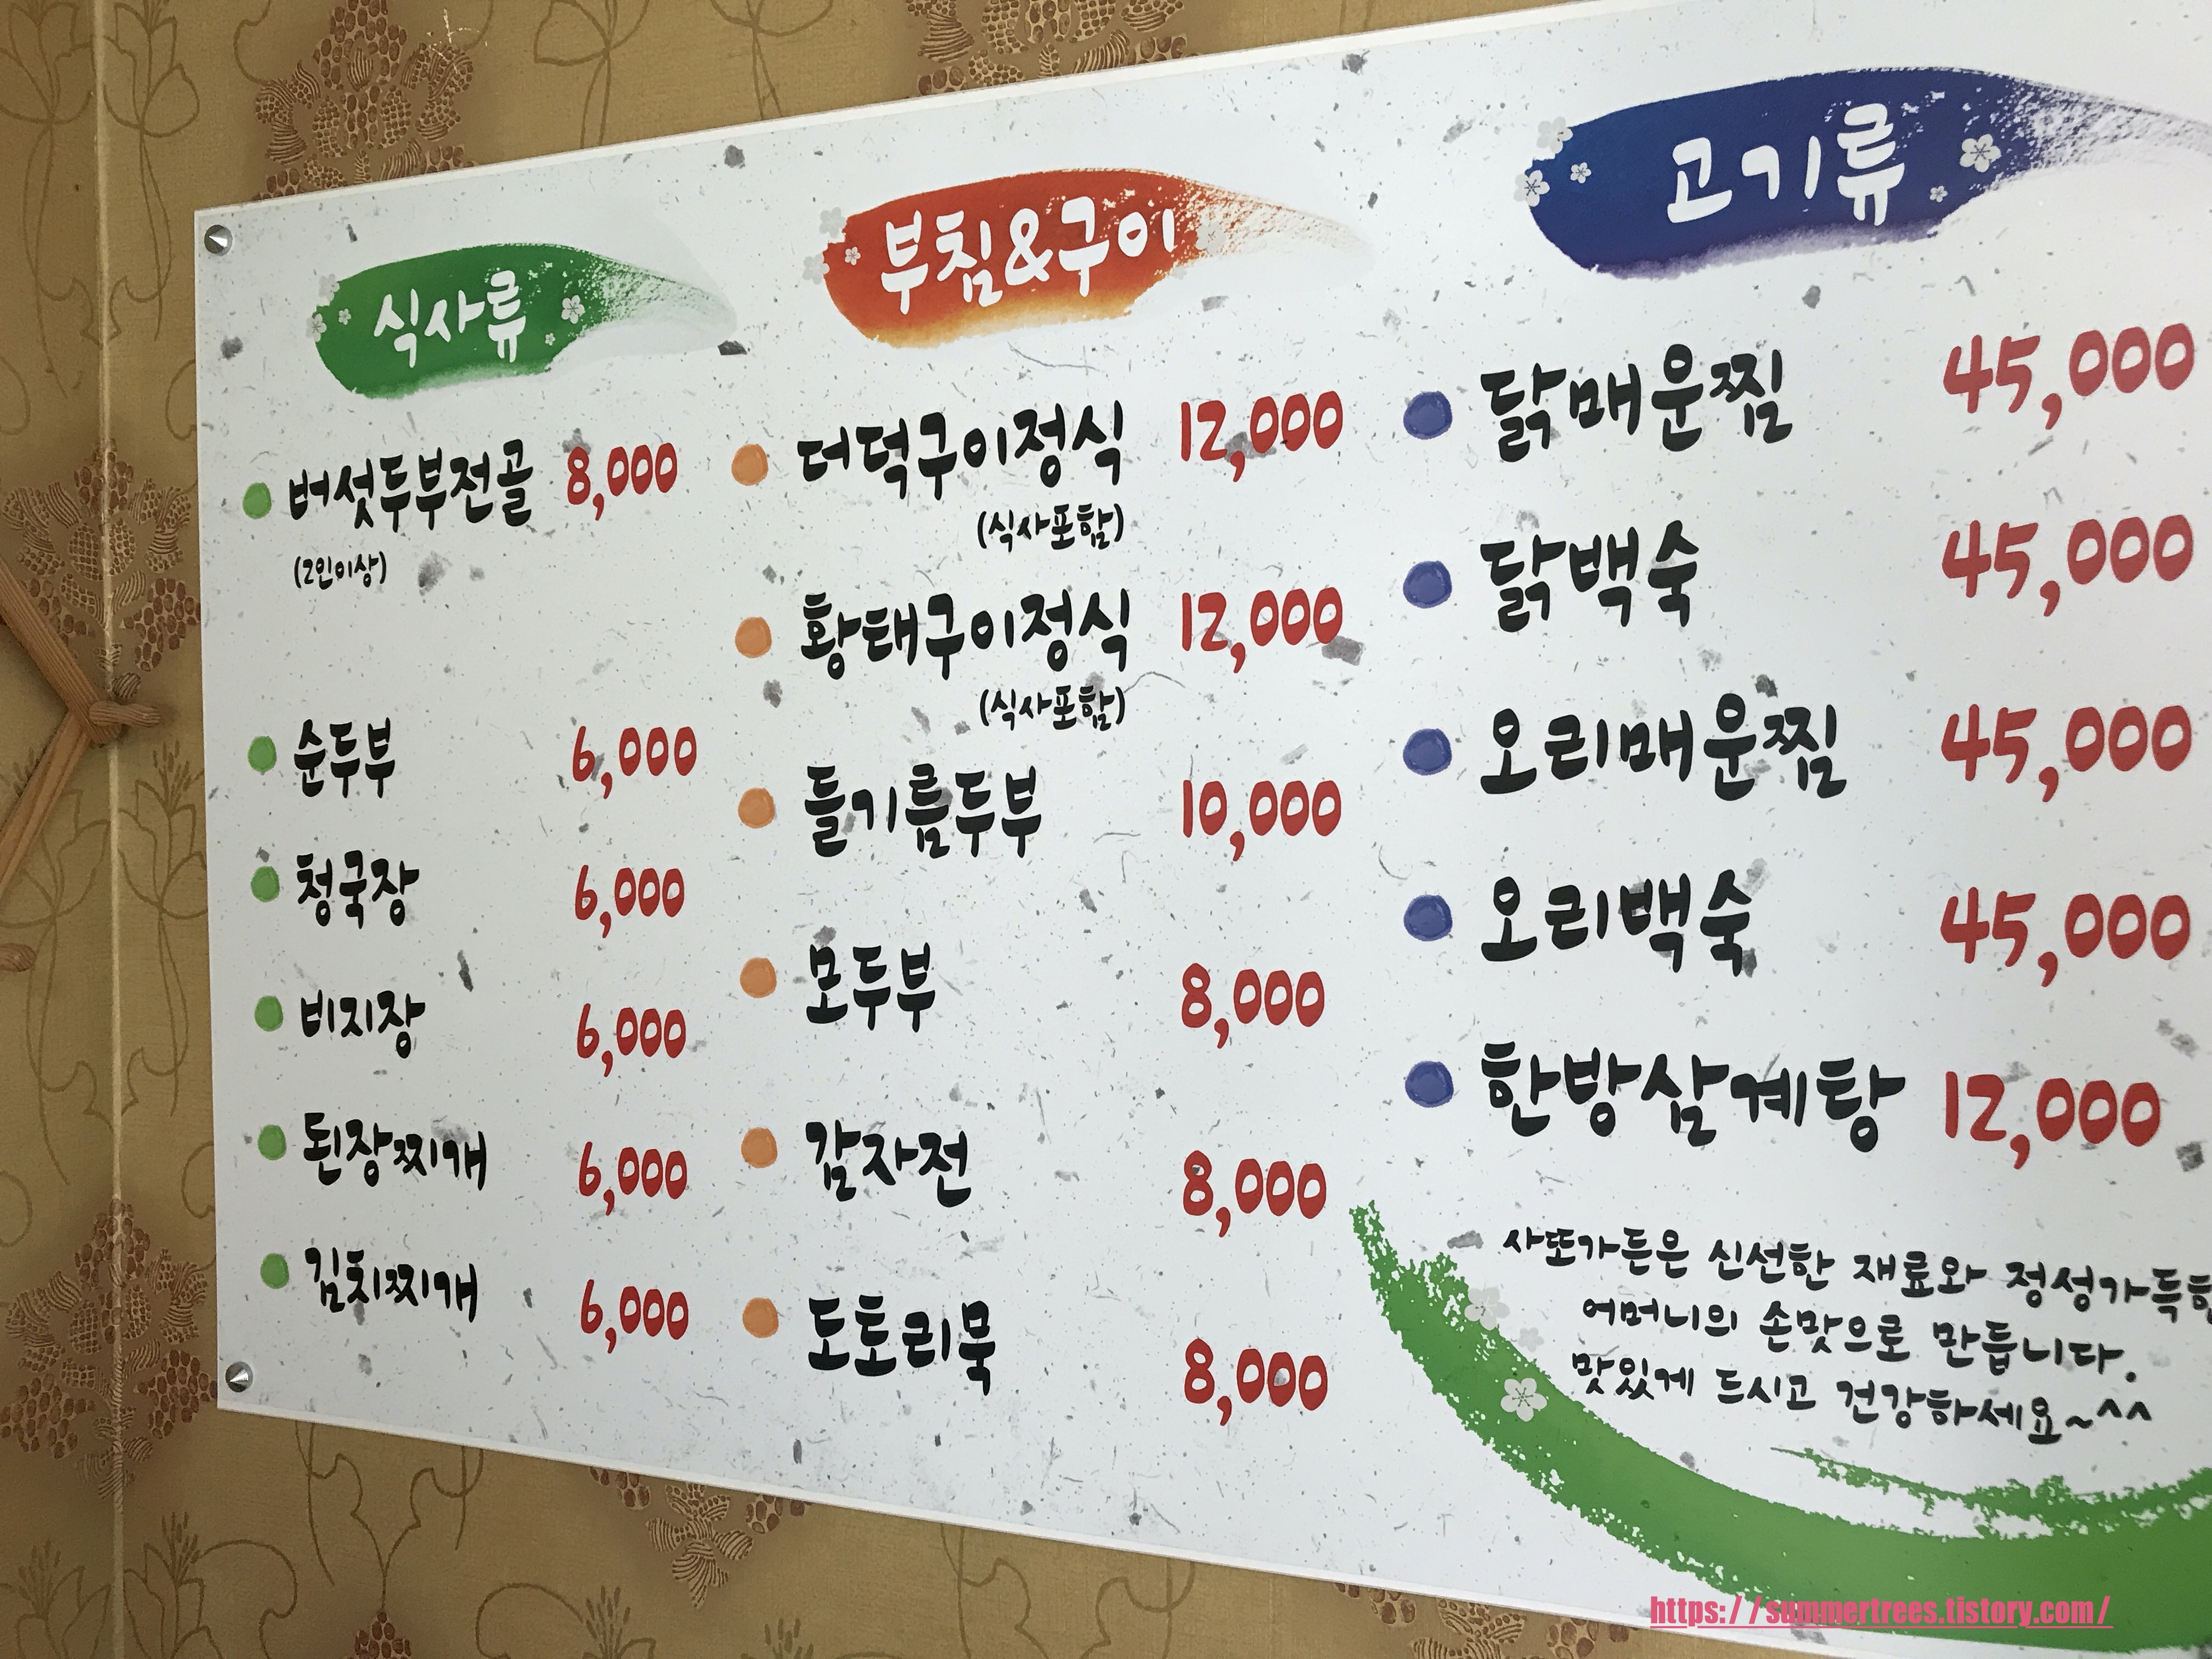 식사류
버섯두부전골 8,000
(2인이상)
순두부 6,000
청국장 6,000
비지장 6,000
된장찌개 6,000
김치찌개 6,000
부침&구이
더덕구이정식 12,000
(식사포함)
황태구이정식 12,000
(식사포함)
들기름두부 10,000
모두부 8,000
감자전 8,000
도토리묵 8,000
고기류
닭매운찜 45,000
닭백숙 45,000
오리매운찜 45,000
오리백숙 45,000
한방삼계탕 12,000
사또가든은 신선한 재료와
어머니의 손맛으로 만듭니다.
맛있게 드시고 건강하세요~^^
https://summertrees.tistory.com/